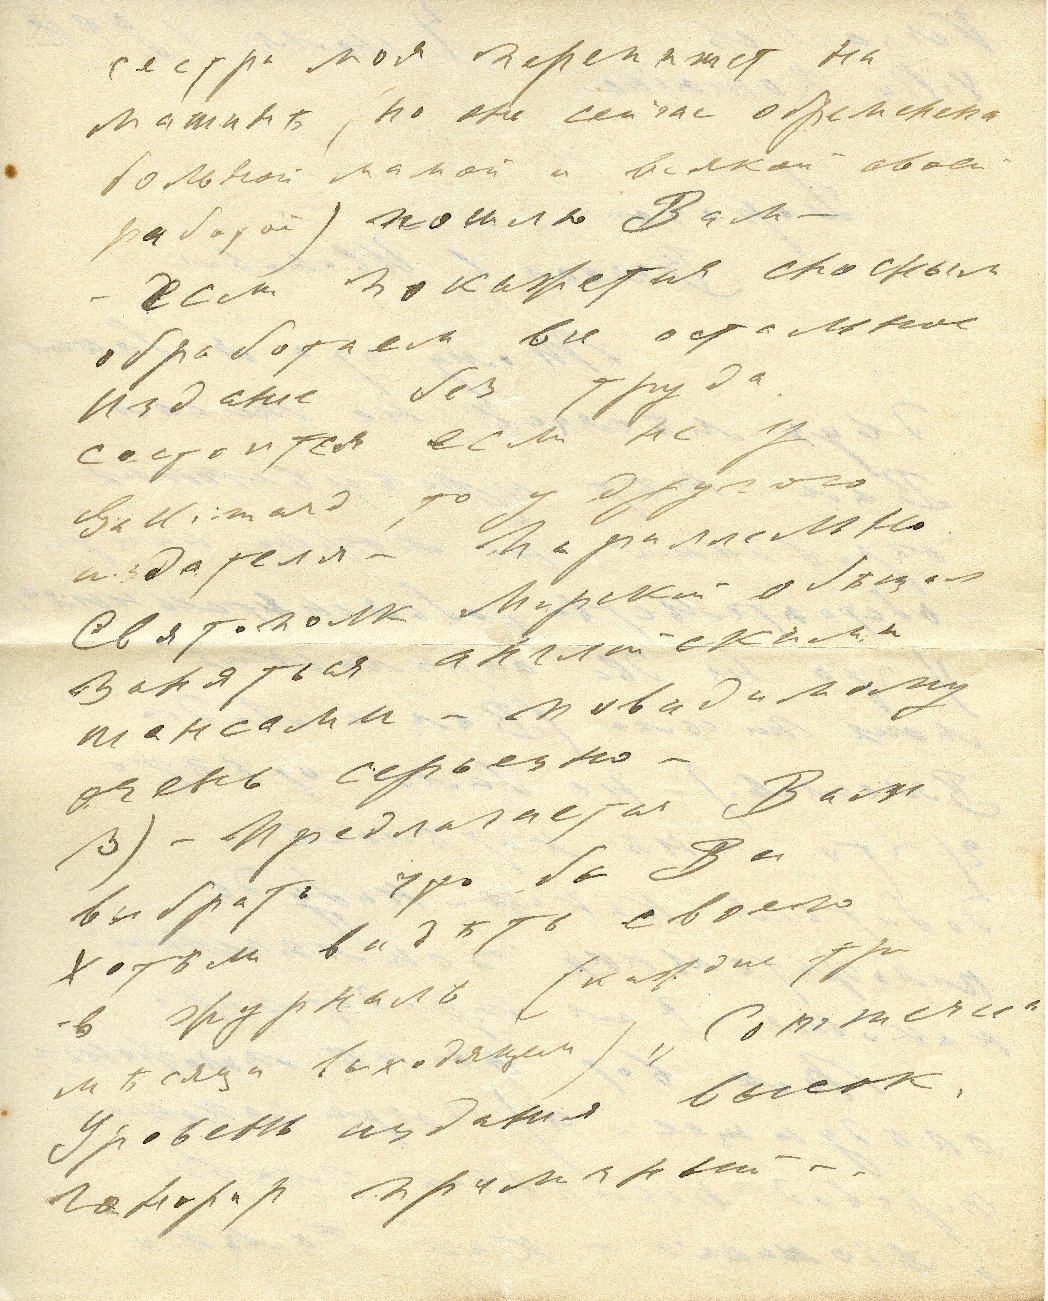 сестра моя перепишет на
машинѣ, но она сейчас обременена
больной мамой и всякой своей
работой) пошлю Вам —
- Если покажется сносным
обработаем все остальное
издание без труда
состоится если не у
Gallimard, то у другого
издателя — Параллельно
Святополк Мирский обѣщал
заняться английскими
шансами — повидимому
очень серьезно —
3) — Предлагается Вам
выбрать что бы Вы
хотѣли видѣть своего
-в журналѣ (каждые три
мѣсяца выходящем) „Commerce
Уровень издания высок.
гонорар приличный — .